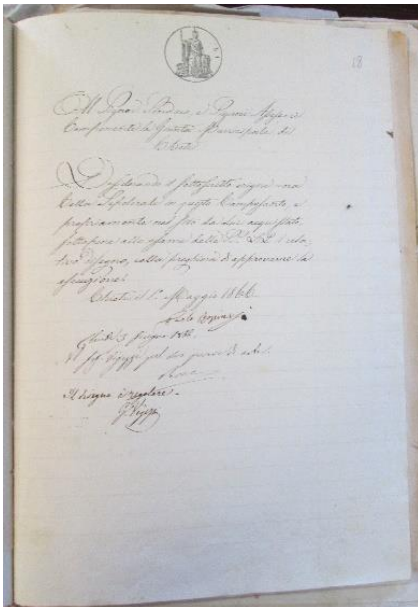 18
Al Signor Sindaco, e Signori Assessori
Componenti la Giunta Municipale di
Chieti
Desiderando il sottoscritto erigere una
Cella Sepolcrale in questo Camposanto, e
propriamente nel sito da lui acquistato,
sottopone allo esame delle S.S. L.L. il relativo
disegno, colla preghiera di approvarne la
esecuzione.
Chieti il 1. Maggio 1866
Chieti 5 Giugno 1866
pel suo parere di arte.
Il disegno è regolare.